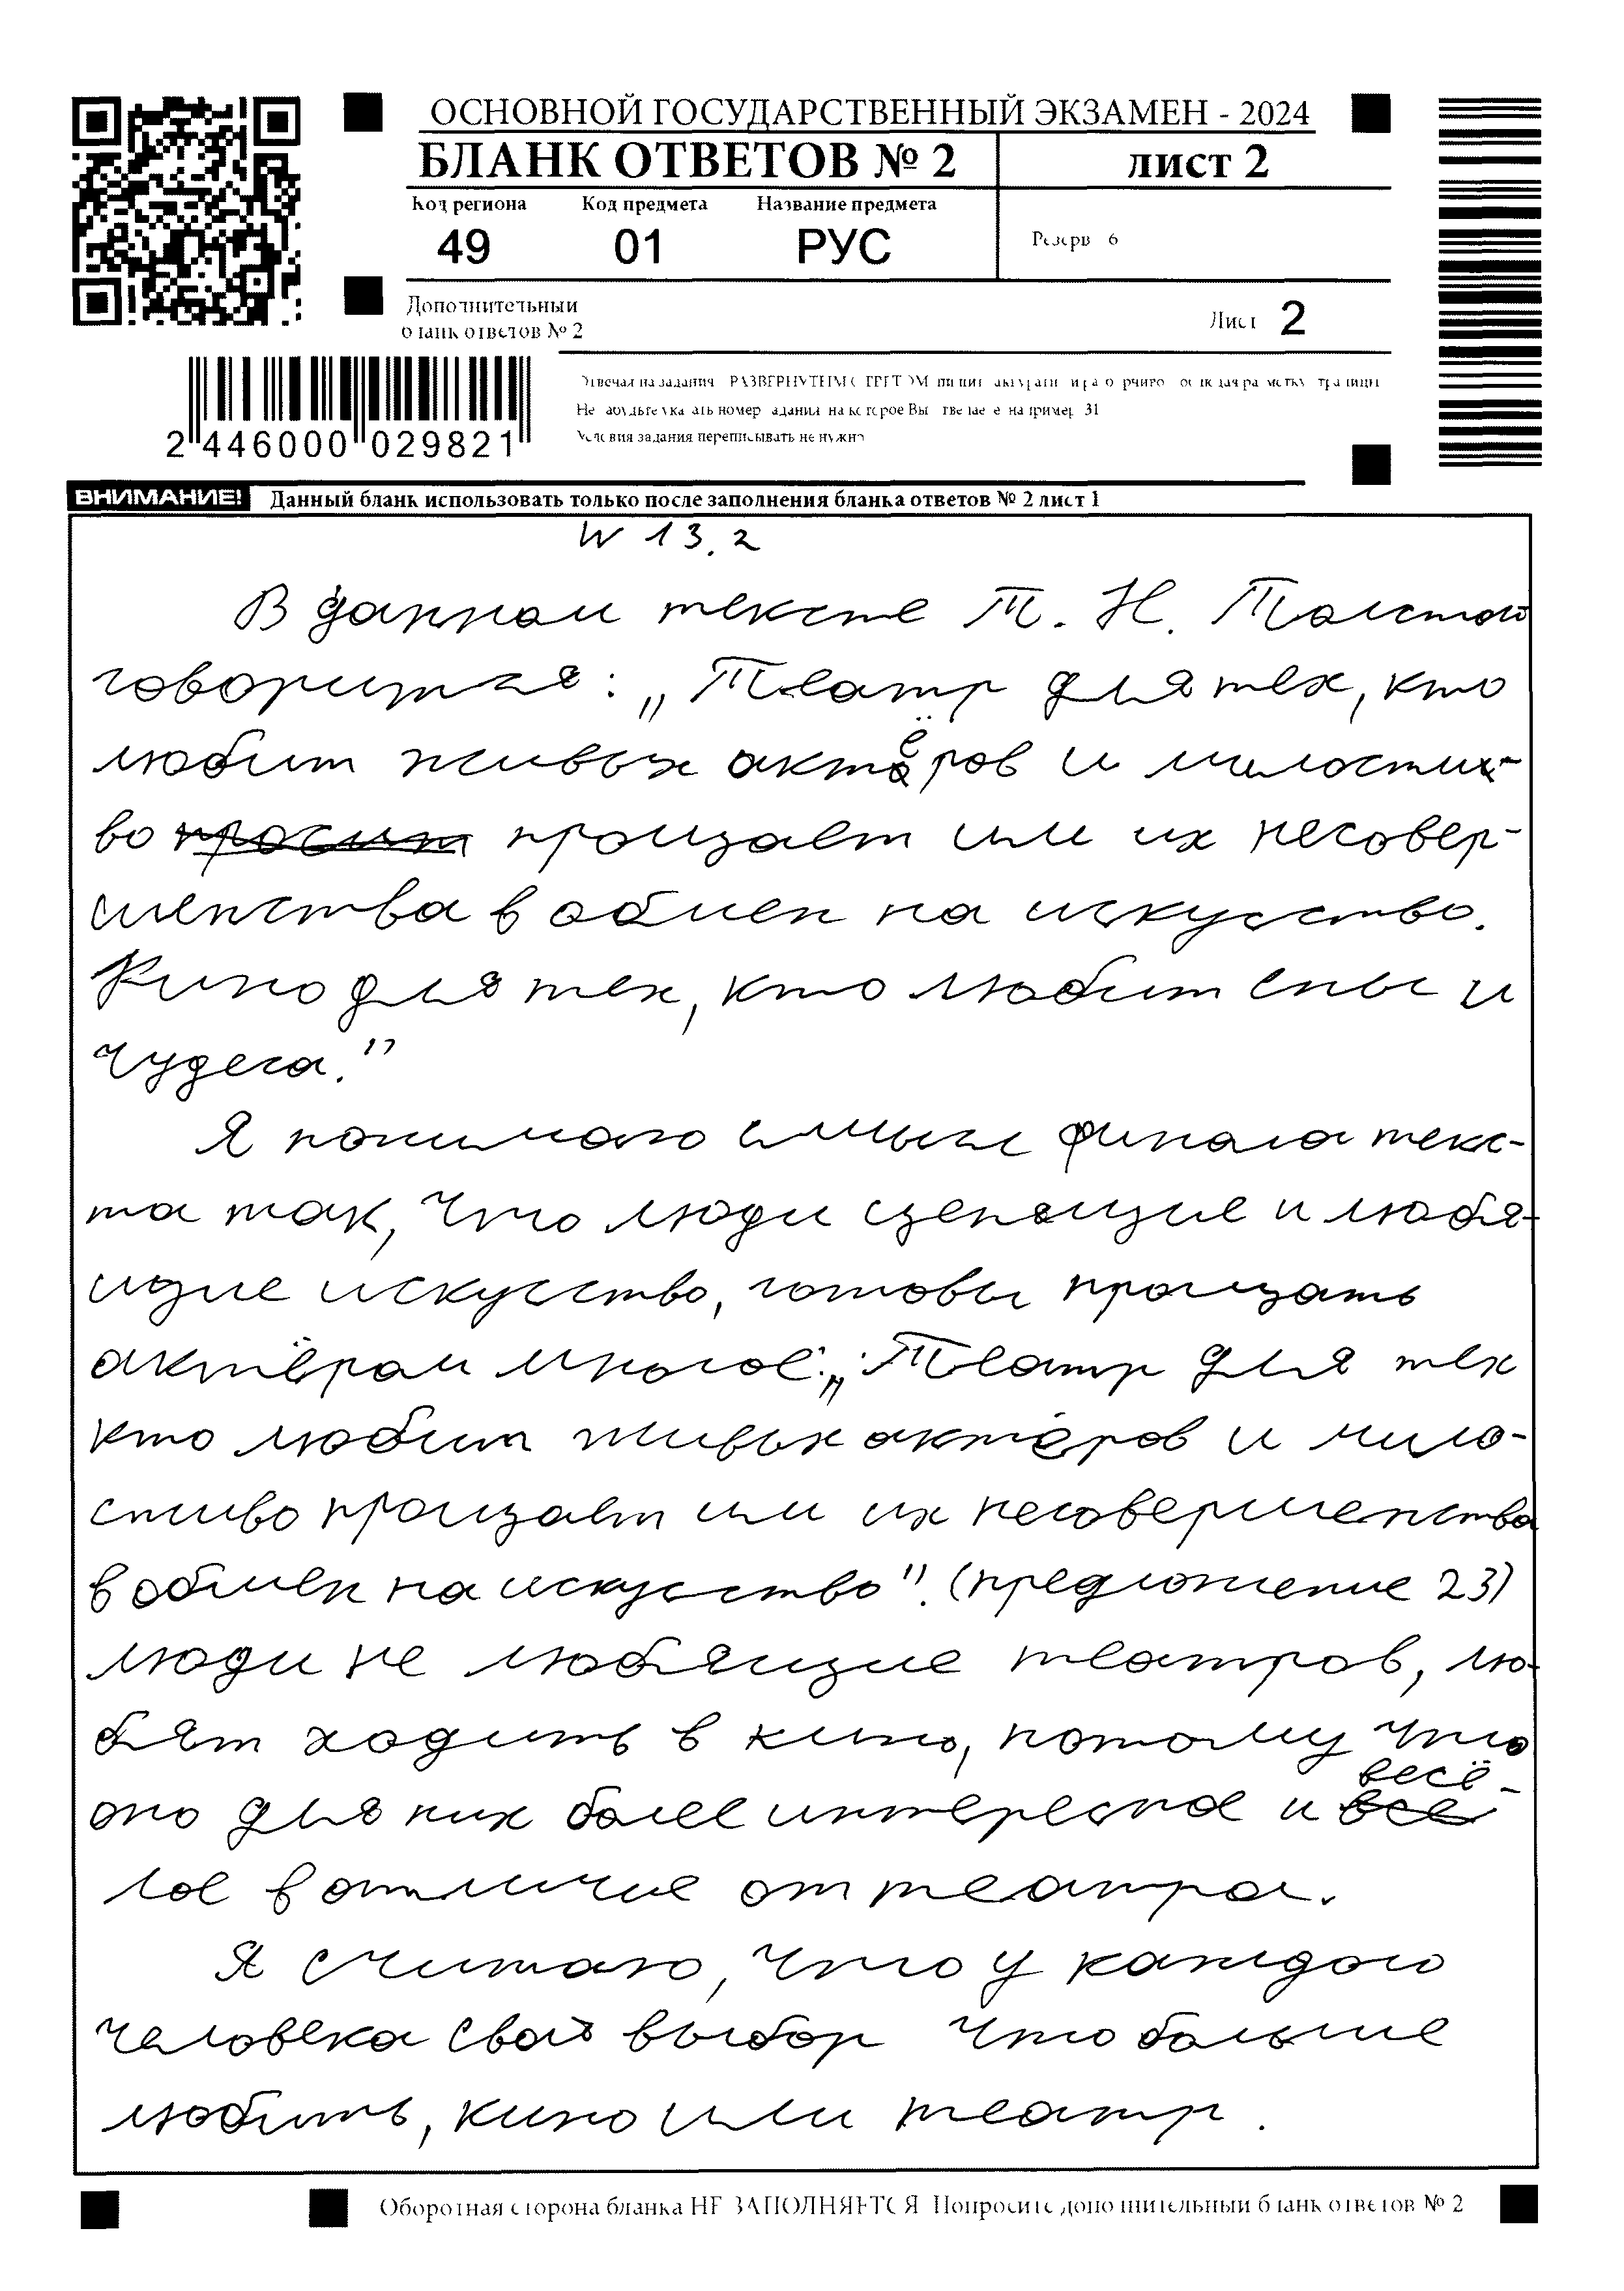 ОСНОВНОЙ ГОСУДАРСТВЕННЫЙ ЭКЗАМЕН - 2024
БЛАНК ОТВЕТОВ № 2
лист 2
Код региона
Код предмета
Название предмета
49
01
РУС
Резерв 6
Дополнительный
бланк ответов № 2
Лист 2
2 446000 029821
Условия задания переписывать не нужно
ВНИМАНИЕ! Данный бланк использовать только после заполнения бланка ответов № 2 лист 1
N 13.2
В данном тексте Т. Н. Толстой
говорится: „Театр для тех, кто
любит живых актёров и милости-
во просит прощает им их несовер-
шенства в обмен на искусство.
Кино для тех, кто любит сны и
чудеса."
Я понимаю смысл финала текс-
та так, что люди ценящие и любя-
щие искусство, готовы прощать
актёрам многое: „Театр для тех
кто любит живых актёров и мило-
стиво прощает им их несовершенства
в обмен на искусство". (предложение 23)
люди не любящие театров, лю-
бят ходить в кино, потому что
оно для них более интересное и все весё-
лое в отличие от театра.
Я считаю, что у каждого
человека свой выбор что больше
любить, кино или театр.
Оборотная сторона бланка НЕ ЗАПОЛНЯЕТСЯ Попросите дополнительный бланк ответов № 2